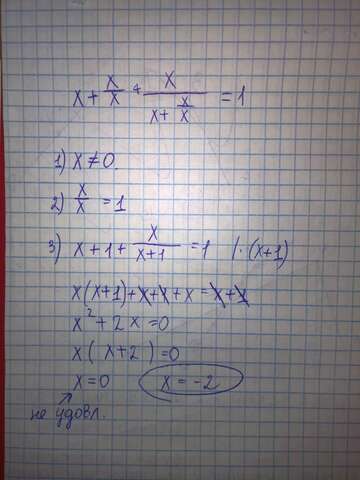 x + x/x + x/(x + x/x) = 1
1) x ≠ 0.
2) x/x = 1
3) x + 1 + x/(x+1) = 1 /·(x+1)
x(x+1) + x + 1 + x = x + 1
x² + 2x = 0
x(x+2) = 0
x = 0 x = -2
не удовл.